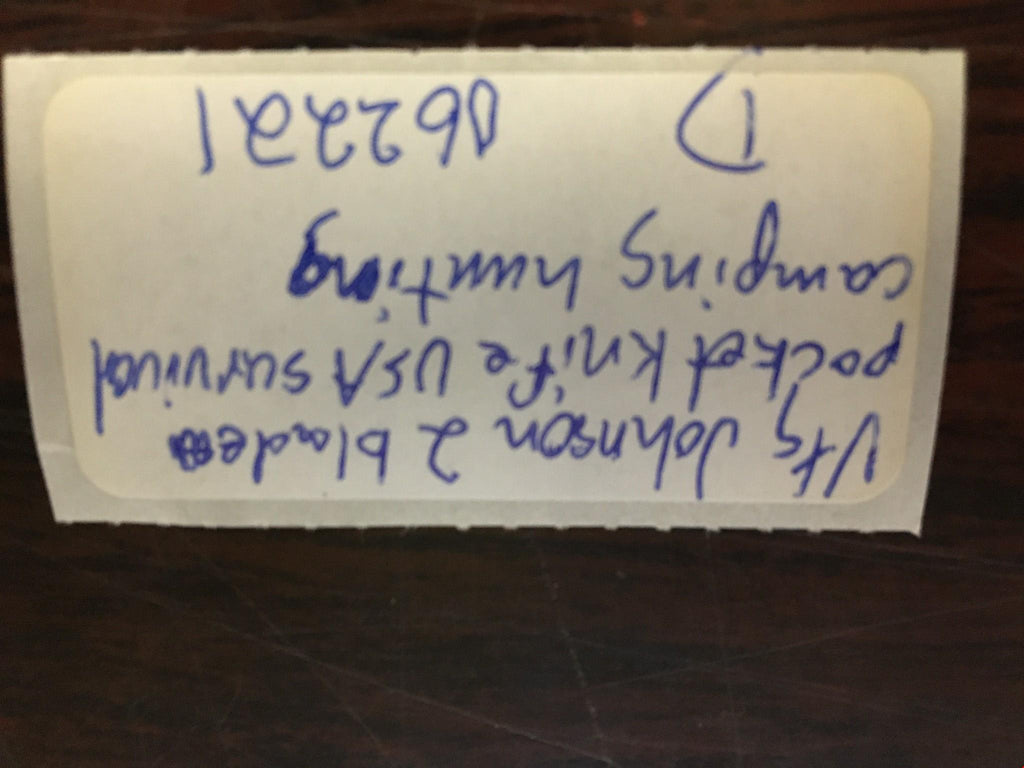 Vtg Johnson 2 blade
pocket knife USA survival
camping hunting
D 062221